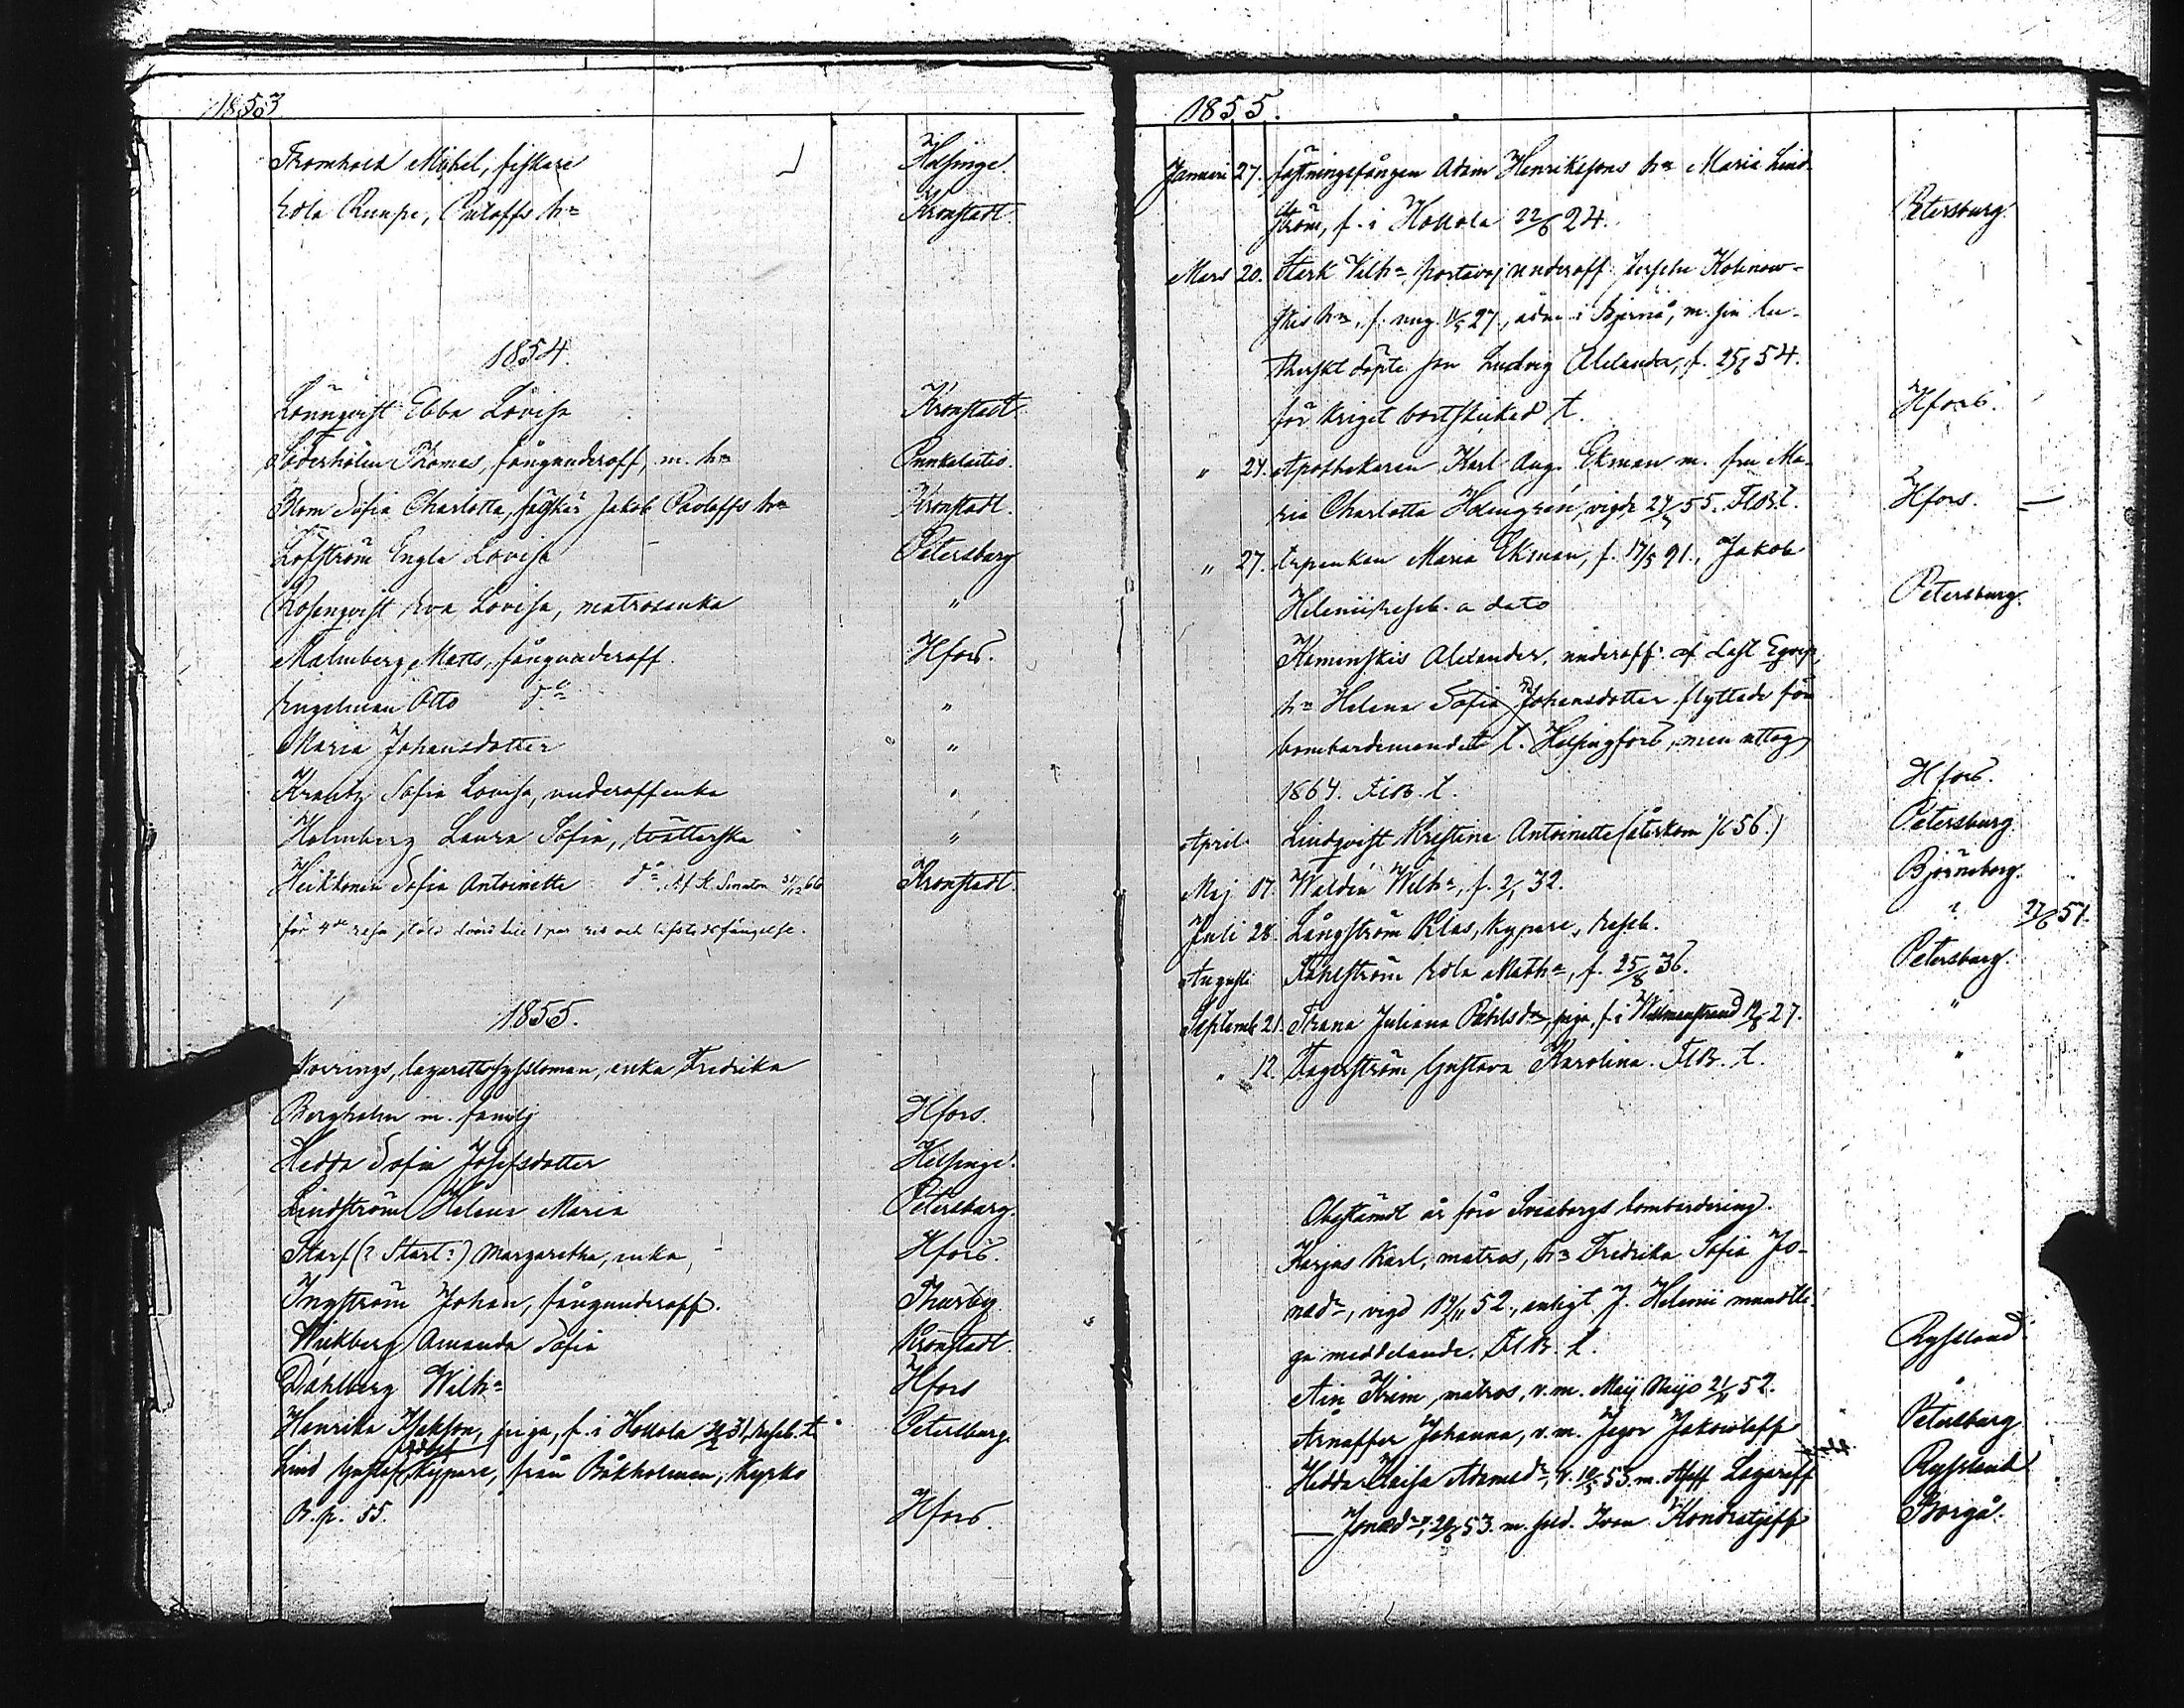 1853
Tromhold Mikel, fiskare Helsinge.
Edla Rumpe, h:a Kronstadt.
1854.
Lönnqvist Ebba Lovisa Kronstadt
Söderholm Thomas, fångunderoff, m. h:a Punkalaitio.
Blom Sofia Charlotta, fältskär Jakob Pavloffs h:a Kronstadt.
Löfström Engla Lovisa Petersburg
Rosenqvist Eva Lovisa, matrosenka "
Malmberg Matts, fångunderoff. Hfors.
Engelman Otto d:o "
Maria Johansdotter "
Krantz Sofia Lovisa, underoffenka "
Holmberg Laura Sofia, tvätterska "
Heikkonen Sofia Antoinette d:o, Af K. Senaten 66 Kronstadt.
för 4:de resan stöld par ris och lifstidsfängelse.
1855.
Norrings, lazarettssyssloman, enka Fredrika
Bergholm m. familj Hfors.
Hedda Sofia Josefsdotter Helsinge.
Lindström Helena Maria Petersburg.
Skarf (? Start?) Margaretha, enka, Hfors.
Ingström Johan, fångunderoff. Thusby
Wickberg Amanda Sofia Kronstadt.
Dahlberg Wilh:a Hfors
Henrika Isakson, piga, f. i Hollola 31, beseb. t. Petersburg.
Lind Gustaf Kypare, från Båkholmen, Kyrko
B. p. 55. Hfors.
1855.
Januari 27. fästningsfången Adam Henrikssons h:a Maria Lind-
ström, f. i Hollola 22/6 24. Petersburg.
Mars 20. Stark Wilh:a, portavoj underoff. Kolinow-
skis h:a, f. 27, i Bjernå, m. sin lu-
therskt döpte son Ludvig Alexander, f. 25/6 54.
för kriget bortskickad t. Hfors.
" 24. Apothekaren Karl Aug. Ekman m. fru Ma-
ria Charlotta Holmgrén, vigde 55. Fl.B.t. Hfors.
" 27. Enpenkan Maria Ekman, f. 17/5 91, Jakob
Helenii beseb. a dato Petersburg.
Kaminskis Alexander, underoff.
h:a Helena Sofia Johansdotter flyttade för
bombardemandet t. Helsingfors, men uttog
1864. Fl.B. t. Hfors.
April Lindqvist Kristina Antoinette (återkom 56.) Petersburg
Maj 07. Waldén Wilh:a, f. 2/1 32. Björneborg.
Juli 28. Långström Klas, kypare, beseb. " 27/6 51.
Augusti Fahlström Edla Math:a, f. 25/8 36. Petersburg.
Septemb 21. Trana Juliana piga, f. i Willmanstrand 27. "
" 12. Fagerström Gustava Karolina. Fl.B. t. "
Obestämdt år före Sveaborgs bombardering.
Karjas Karl, matros, h:a Fredrika Sofia Jo-
nad:r, vigd 19/11 52, enligt J. Helenii mundtli-
ga meddelande. Fl.B. t. Ryssland
Ain Krim, matros, v. m. 52. "
Arnaffer Johanna, v. m. Jegor Jakowleff Petersburg
Hedda Kaisa Adamsd:r, v. 53. m. Lazareff Ryssland
— 53. m. sold. Ivan Kondratjeff Borgå.